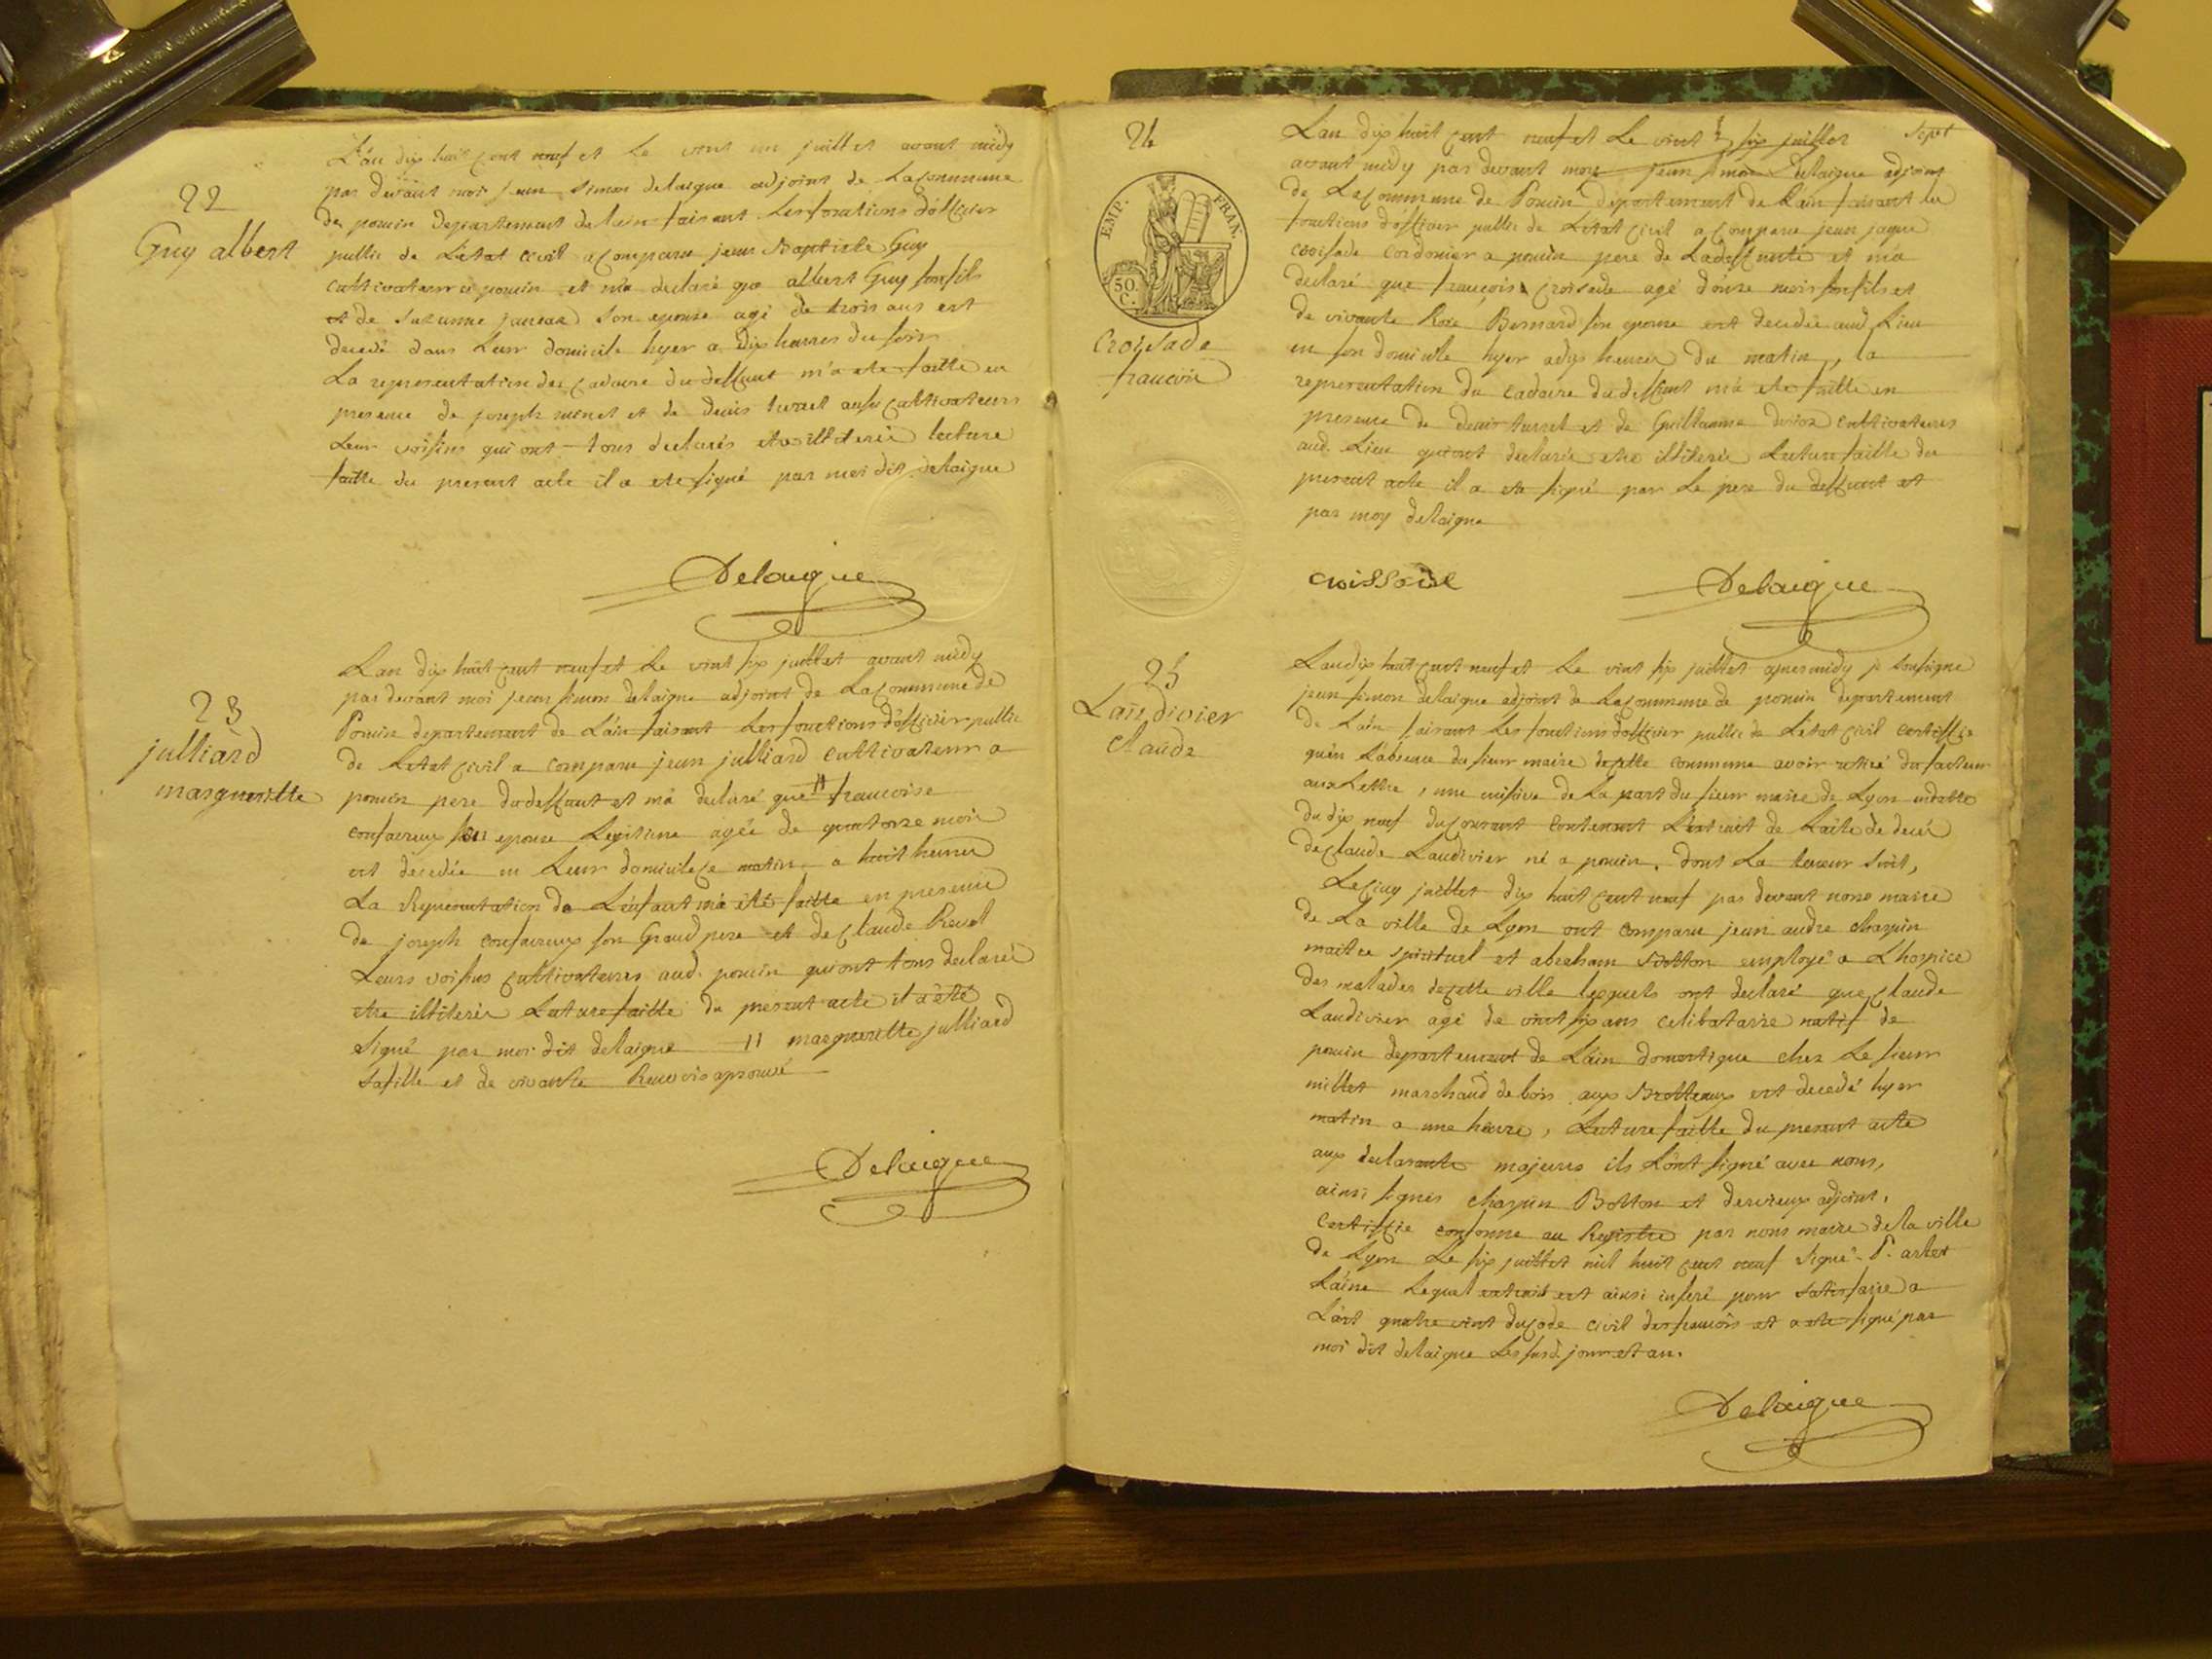 22
Guy albert
L'an dix huit cent neuf et le vint un juillet avant midy
par devant moi jean simon delaigue adjoint de la commune
de poncin departement de lain faisant les fonctions d'officier
public de l'état civil a comparu jean Baptiste Guy
cultivateur a poncin et m'a declaré que albert Guy son fils
et de suzanne son epouse agé de trois ans est
decedé dans leur domicile hyer a dix heures du soir
La representation du cadavre du deffunt m'a eté faitte en
presence de joseph minet et de denis turrel aussi cultivateurs
leur voisins qui ont tous declarés etre illiterés lecture
faitte du present acte il a ete signé par moi dit delaigue
Delaigue
23
julliard
margueritte
L'an dix huit cent neuf et le vint six juillet avant midy
par devant moi jean simon delaigue adjoint de la commune de
Poncin departement de Lain faisant les fonctions d'officier public
de letat civil a comparu jean julliard cultivateur a
poncin pere du deffunt et ma declaré que # francoise
confavreux son epouse legitime agée de quatorze mois
est decedée en leur domicile ce matin a huit heures
La Representation de Lenfant ma été faitte en presence
de joseph confavreux son Grand pere et de claude Revel
Leurs voisins cultivateurs aud. poncin qui ont tous declarés
etre illiterés Lecture faitte du present acte il a été
signé par moi dit delaigue # marguerette julliard
sa fille et de vivante Renvois aprouvé
Delaigue
24
EMP. FRAN.
50. C.
Croisade
francois
Sept
Lan dix huit cent neuf et Le vint six juillet
avant midy par devant moy jean simon delaigue adjoint
de La commune de Poncin departement de Lain faisant les
fonctions d'officier public de Létat civil a comparu jean jaque
croisade cordonier a poncin pere de La deffunte et m'a
declaré que francois croisade agé d'onze mois son fils et
de vivante Rose Bernard son epouse est decedée aud. Lieu
en son domicile hyer a dix heures du matin, la
representation du cadavre du deffunt m'a ete faitte en
presence de denis turrel et de Guillaume cultivateurs
aud. Lieu qui ont declarés etre illiterés Lecture faitte du
present acte il a ete signé par Le pere du deffunt et
par moy delaigue
croissade
Delaigue
25
Landivier
claude
Lan dix huit cent neuf et Le vint six juillet apres midy je soussigné
jean simon delaigue adjoint de La commune de poncin departement
de Lain faisant Les fonctions d'officier public de Létat civil certiffie
quen Labsence du sieur maire de cette commune avoir retiré du facteur
aux Lettre, une missive de La part du sieur maire de Lyon en datte
du dix neuf du courant contenant Lextrait de Lacte de decés
de claude Landivier né a poncin. dont La teneur suit,
Le cinq juillet dix huit cent neuf par devant nous maire
de La ville de Lyon ont comparu jean andre chapuin
maitre spirituel et abraham Botton employé a Lhospice
des malades de cette ville lesquels ont declaré que claude
Landivier agé de vint six ans celibataire natif de
poncin departement de Lain domestique chez Le sieur
millet marchand de bois aux Brotteaux est decedé hyer
matin a une heure, Lecture faitte du present acte
aux declarants majeurs ils Lont signé avec nous,
ainsi signés chapuin Botton et dervieux adjoint,
Certiffie conforme au Registre par nous maire de la ville
de Lyon Le six juillet mil huit cent neuf signé P.
Lainé Lequel extrait est ainsi inseré pour satisfaire a
Lart quatre vint du code civil des francois et a ete signé par
moi dit delaigue Les susd. jour et an.
Delaigue